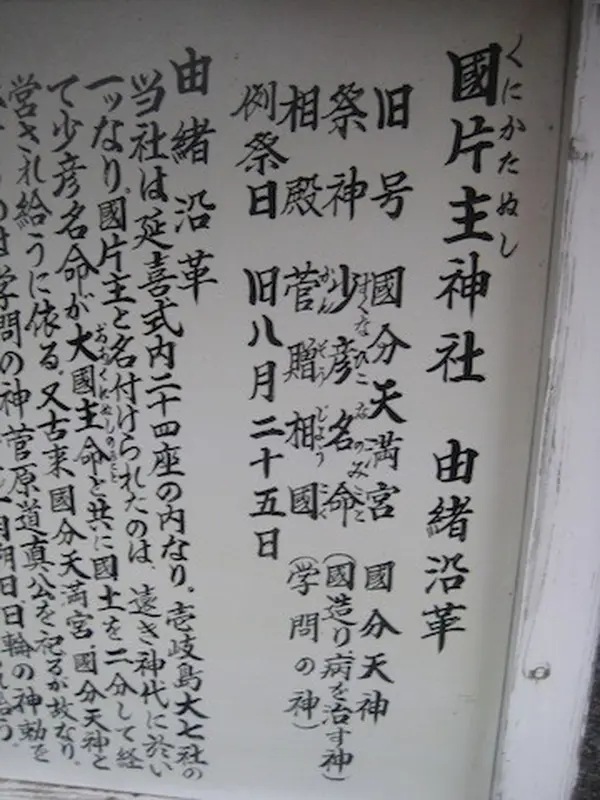 國片主神社 由緒沿革
くにかたぬし
旧号 國分天満宮 國分天神
祭神 少彦名命 (國造り病を治す神)
すくなひこなのみこと
相殿 菅贈相國 (学問の神)
かんぞうじょうこく
例祭日 旧八月二十五日
由緒沿革
当社は延喜式内二十四座の内なり。壱岐島大七社の
一ツなり。國片主と名付けられたのは、遠き神代に於い
て少彦名命が大國主命と共に國土を二分して経
おおくにぬしのみこと
営され給うに依る。又古来國分天満宮、國分天神と
のは学問の神菅原道真公を祀るが故なり。
月朔日日輪の神勅を